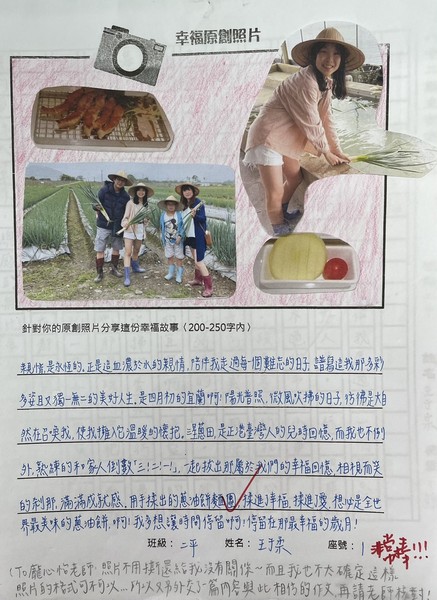 幸福原創照片
針對你的原創照片分享這份幸福故事（200-250字內）
親情,是永恆的,正是這血濃於水的親情,陪伴我走過每一個難忘的日子,譜寫這我那多彩
多姿且又獨一無二的美好人生。是四月初的宜蘭啊!陽光普照,微風吹拂的日子,彷彿是大自
然在召喚我,使我擁入它溫暖的懷抱。三星蔥田是正港臺灣人的兒時回憶,而我也不例
外,熟練的和家人倒數「三!二!一!」,一起拔出那屬於我們的幸福回憶,相視而笑
的剎那,滿滿成就感,用手揉出的蔥油餅麵團,揉進幸福,揉進愛,想必是全世
界最美味的蔥油餅,啊!我多想讓時間停留啊!停留在那最幸福的歲月!
班級: 二平 姓名: 王于柔 座號: 1
(To龐心怡老師:照片不用擔心還給我,沒有關係~而且我也不太確定這樣
照片的格式可不可以...所以又另外交了一篇內容與此相仿的作文,再請老師核對!